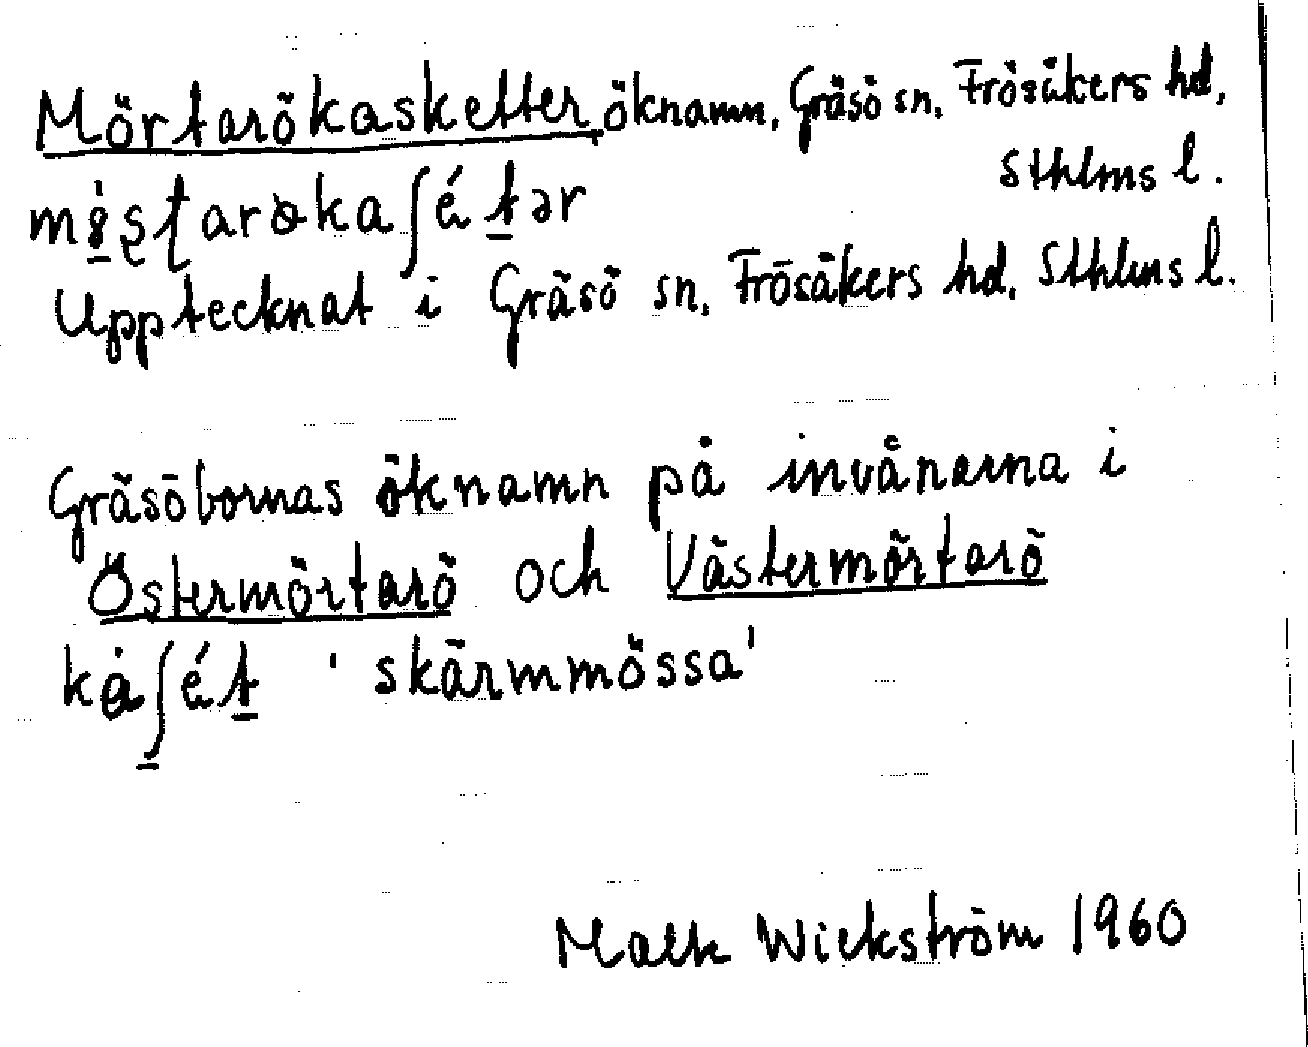 Mörtarökasketter, öknamn, Gräsö sn, Frösåkers hd,
Sthlms l.
Upptecknat i Gräsö sn, Frösåkers hd, Sthlms l.
Gräsöbornas öknamn på invånarna i
Östermörtarö och Västermörtarö
'skärmmössa'
Wickström 1960